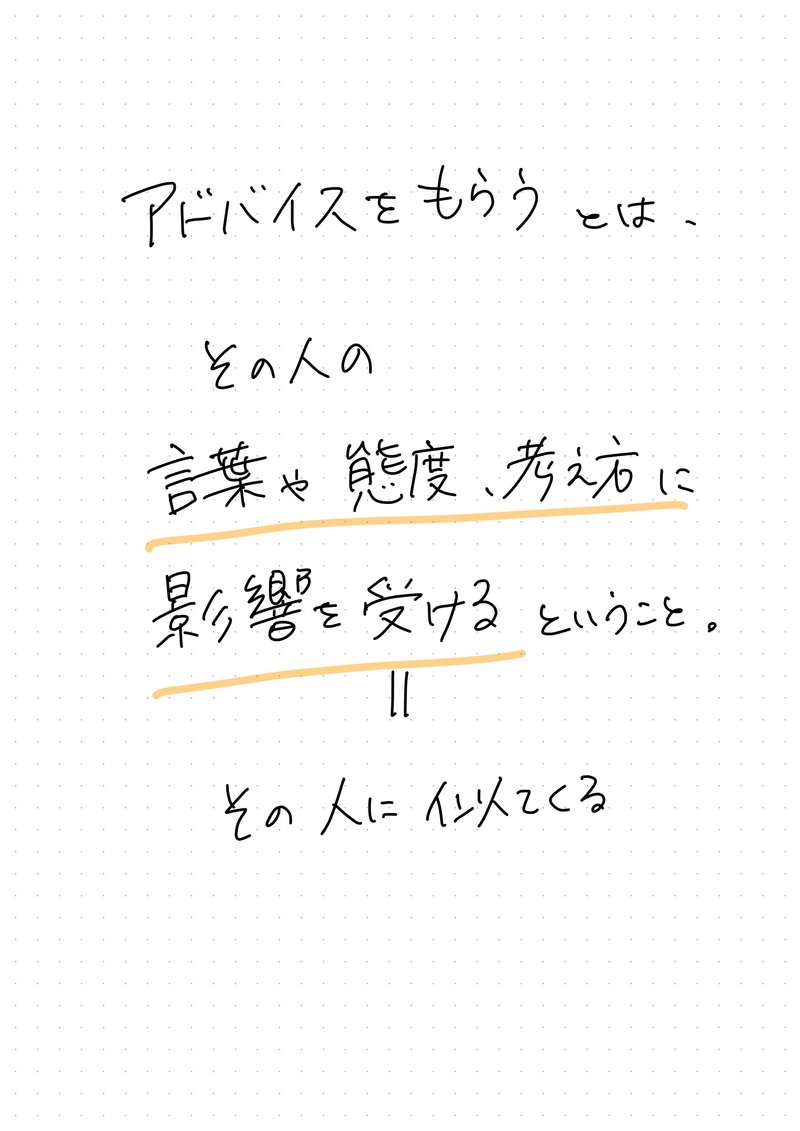 アドバイスをもらうとは、
その人の
言葉や態度、考え方に
影響を受けるということ。
=
その人に似てくる